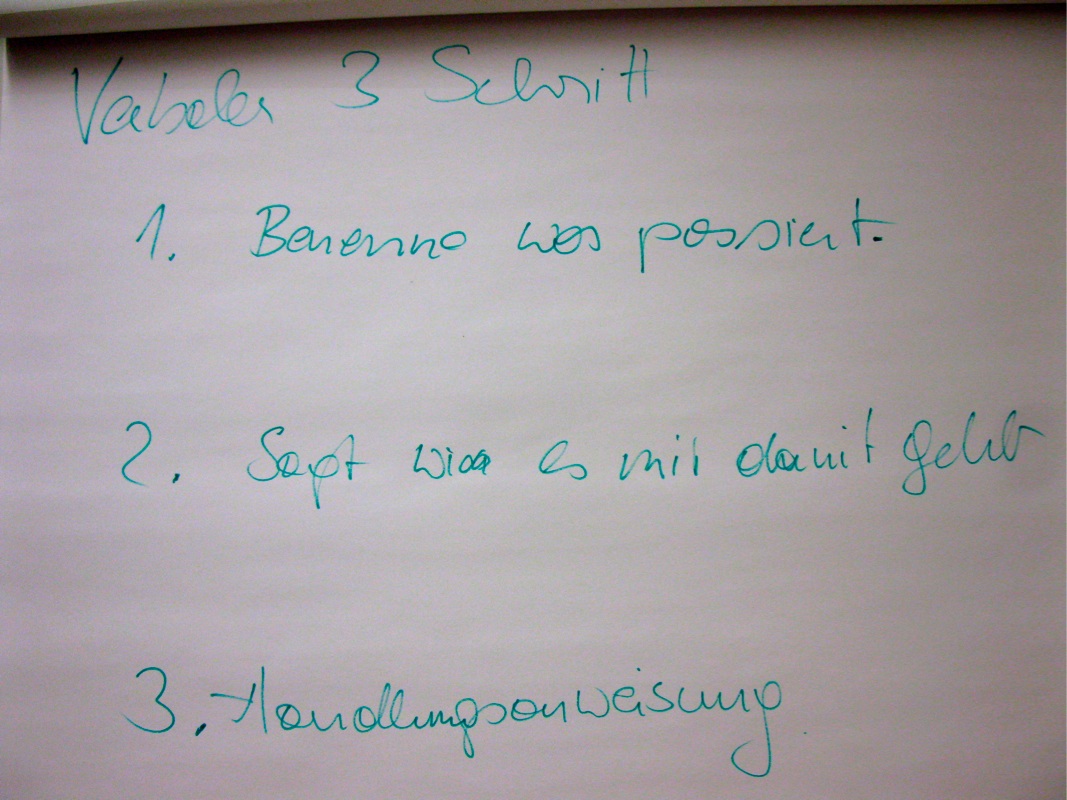 Verbaler 3 Schritt
1. Benenne was passiert.
2. Sagt wie es mir damit geht
3. Handlungsanweisung